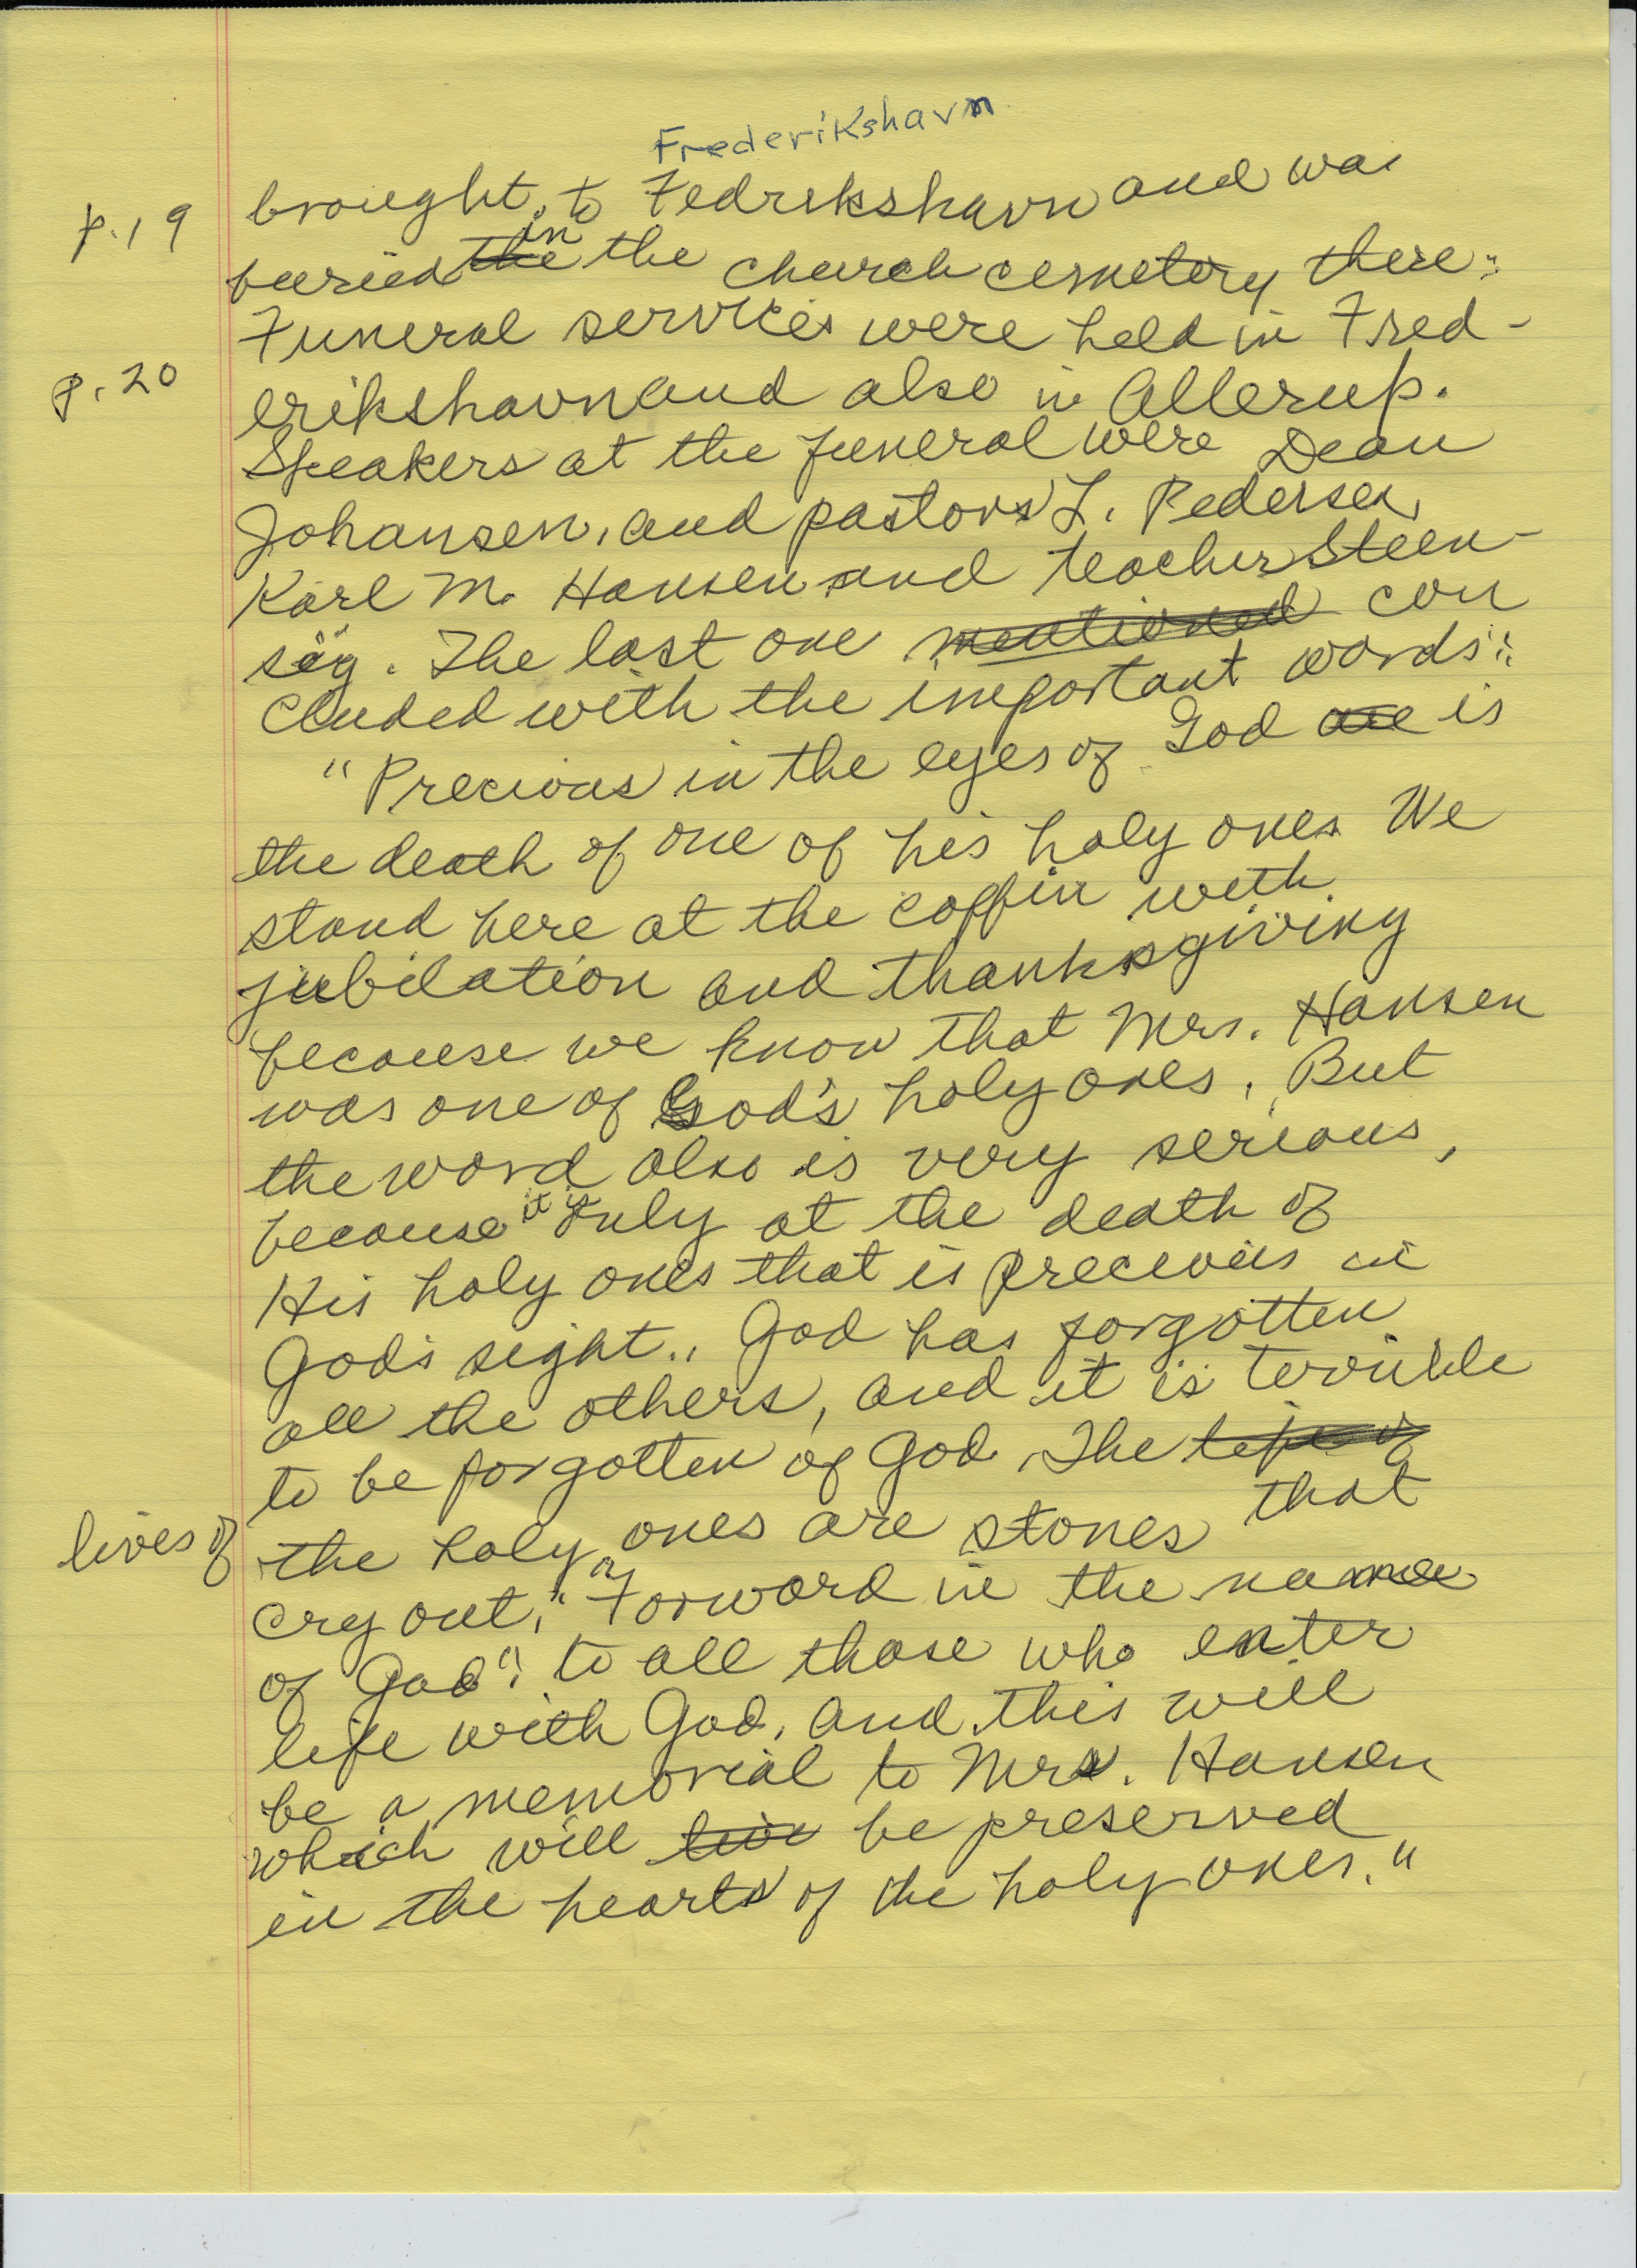 Frederikshavn
p.19 brought, to Fedrikshavn and was
buried the in the church cemetery there.
Funeral services were held in Fred-
p.20 erikshavn and also in Allerup.
Speakers at the funeral were Dean
Johansen, and pastors L. Pedersen,
Karl M. Hansen and teacher Steen-
søg. The last one mentioned con
cluded with the important words:
"Precious in the eyes of God are is
the death of one of his holy ones. We
stand here at the coffin with
jubilation and thanksgiving
because we know that Mrs. Hansen
was one of God's holy ones. But
the word also is very serious,
because it is only at the death of
His holy ones that is precious in
God's sight. God has forgotten
all the others, and it is terrible
to be forgotten of God. The life of
lives of the holy ones are stones that
cry out, "Forward in the name
of God", to all those who enter
life with God, and this will
be a memorial to Mrs. Hansen
which will live be preserved
in the hearts of the holy ones."